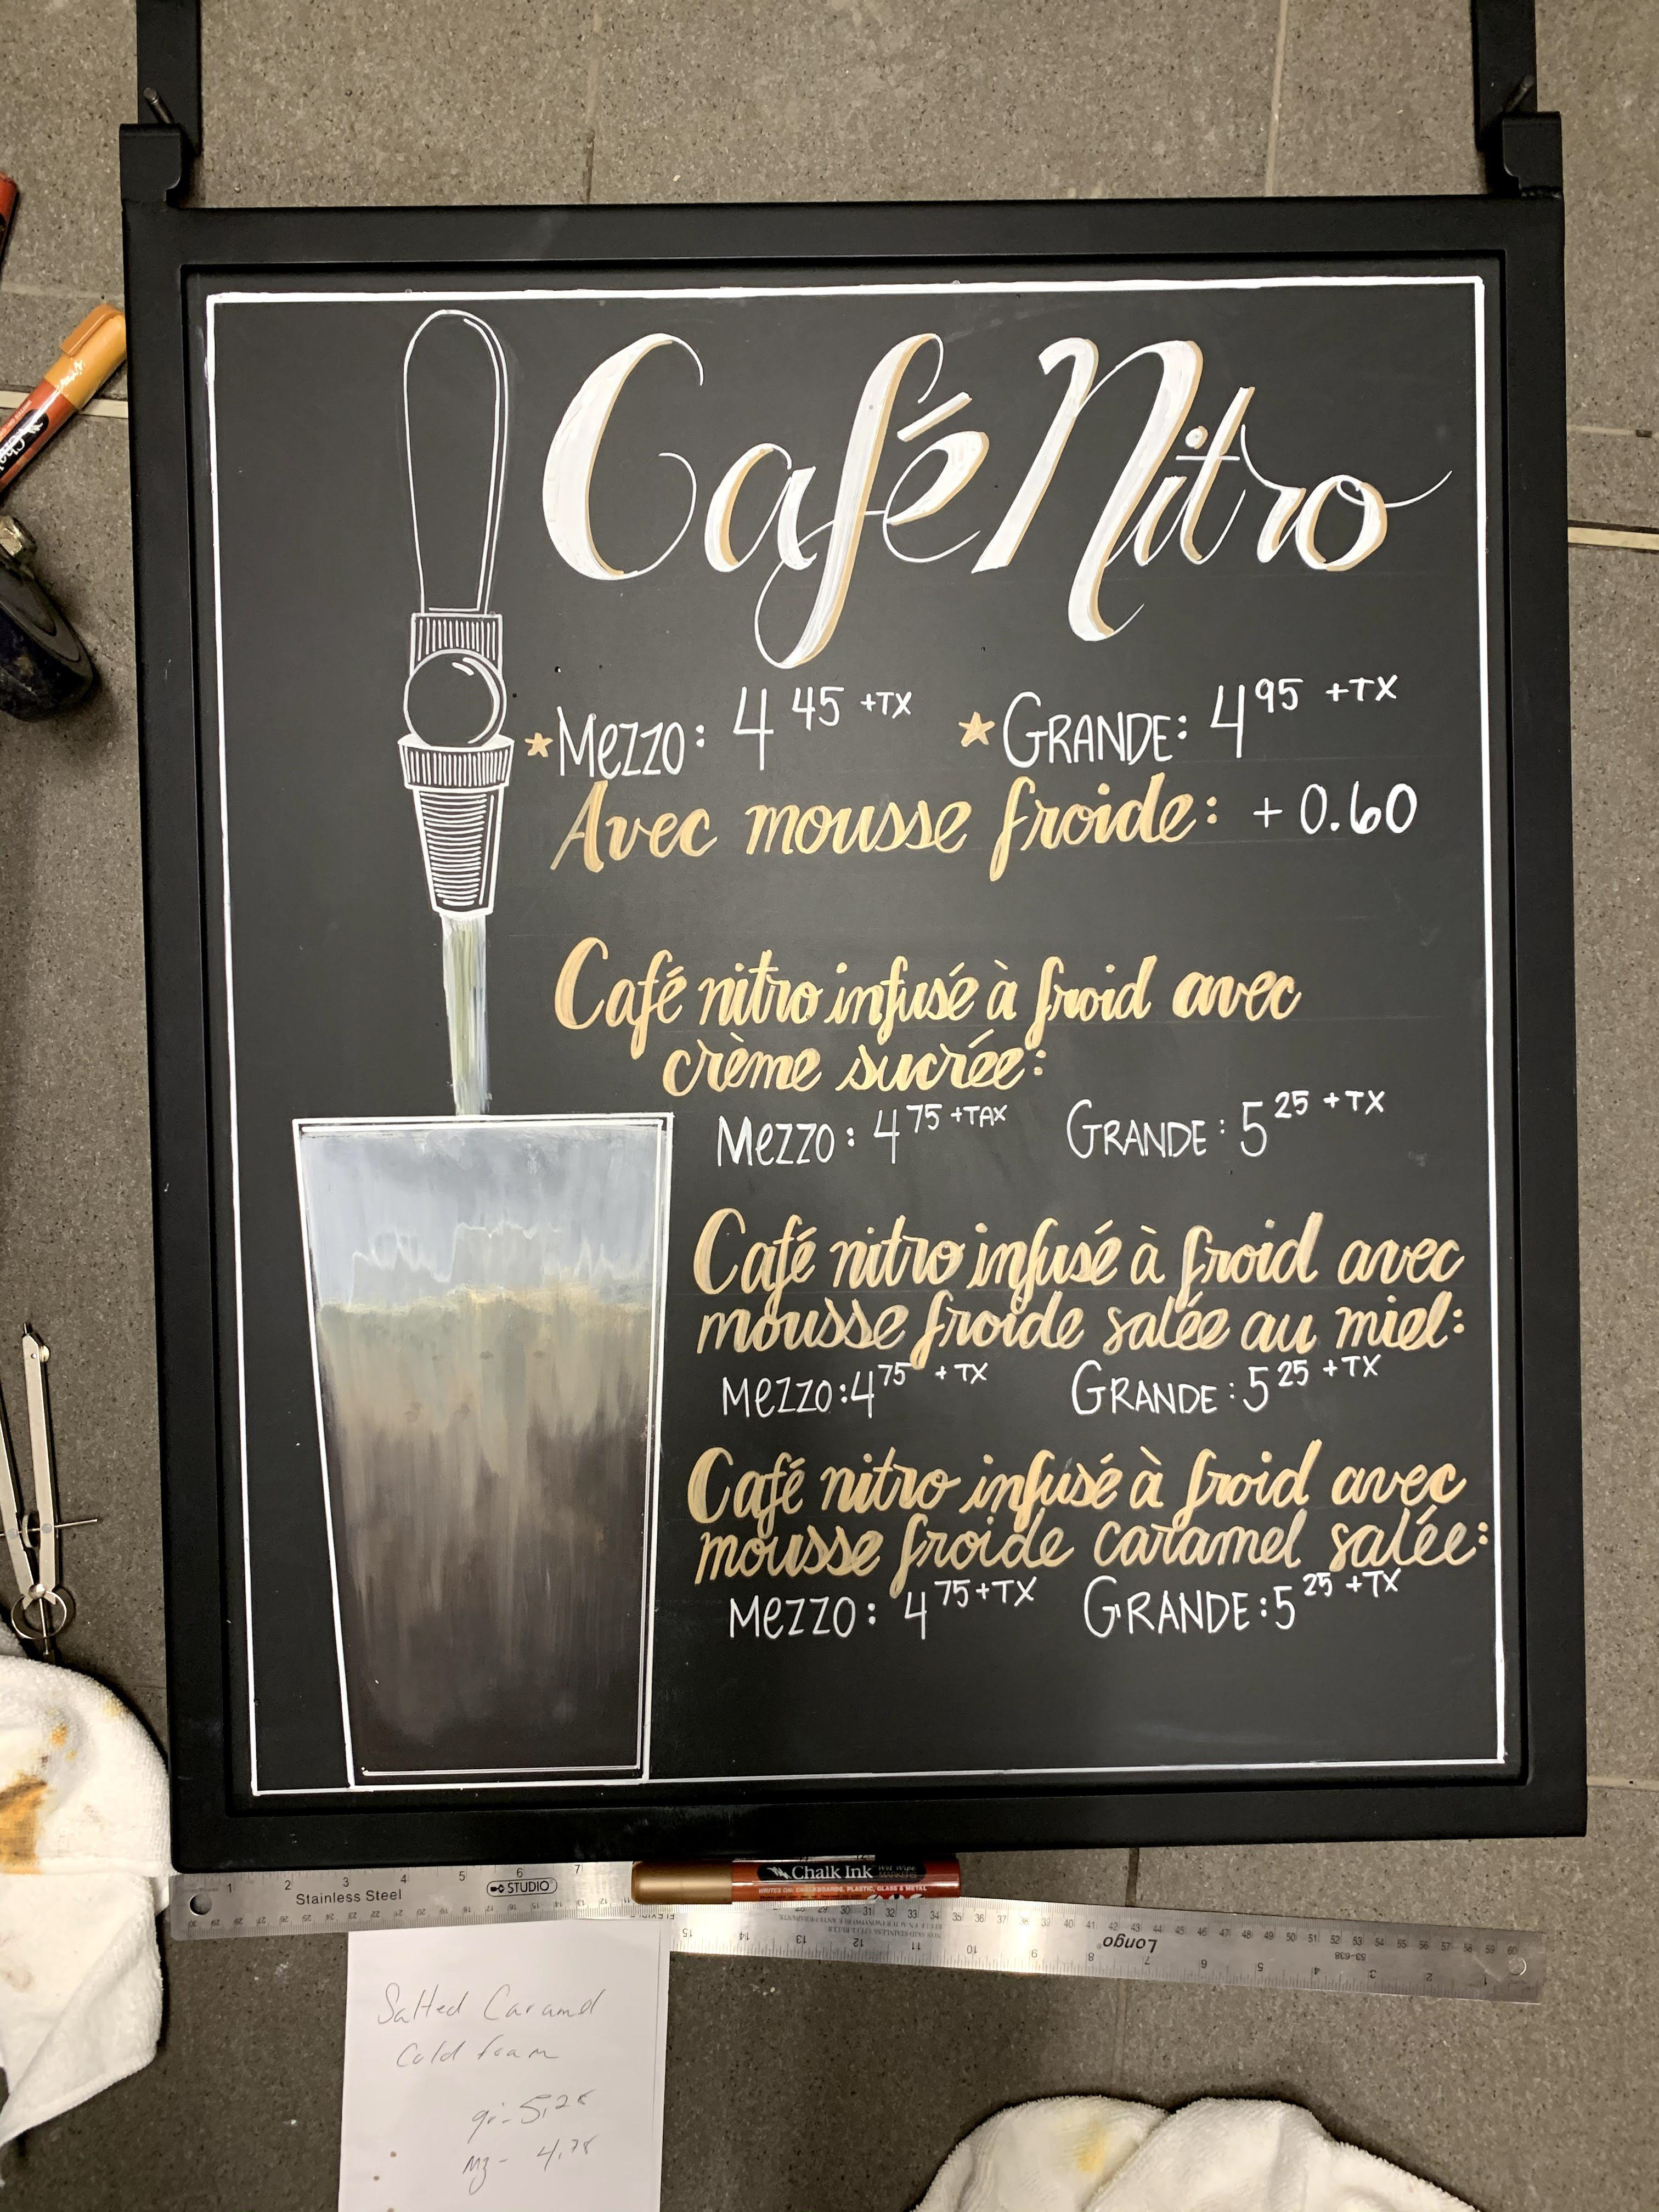 Café Nitro
★Mezzo: 4 45 +TX ★GRANDE: 4 95 +TX
Avec mousse froide: + 0.60
Café nitro infusé à froid avec
crème sucrée:
Mezzo: 4 75 +TAX GRANDE: 5 25 +TX
Café nitro infusé à froid avec
mousse froide salée au miel:
Mezzo: 4 75 +TX GRANDE: 5 25 +TX
Café nitro infusé à froid avec
mousse froide caramel salée:
Mezzo: 4 75 +TX GRANDE: 5 25 +TX
Stainless Steel
STUDIO
Chalk Ink Wet Wipe MARKERS
WRITES ON: CHALKBOARDS, PLASTIC, GLASS & METAL
Longo
53-638
Salted Caramel
Cold foam
gr- 5,25
mz- 4,75